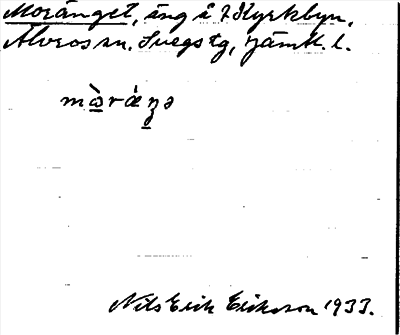 Moränget, äng å 2 Kyrkbyn,
Älvros sn. Svegs tg, Jämtl. l.
Nils Erik Erikson 1933.